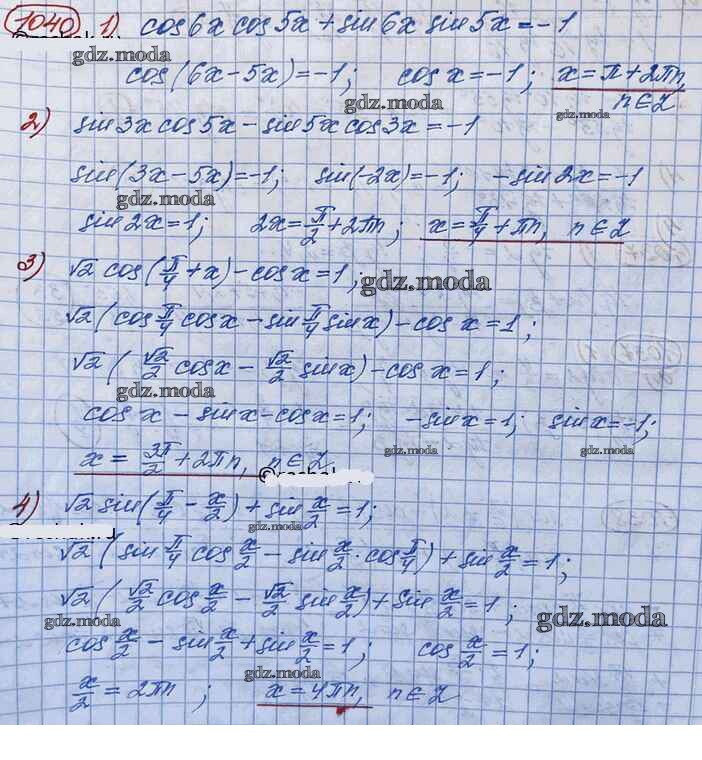 1040 1) cos6x cos5x + sin6x sin5x = -1
gdz.moda
cos(6x-5x)=-1; cos x=-1; x=π+2πn,
gdz.moda n∈Z
2) sin3x cos5x - sin5x cos3x = -1
sin(3x-5x)=-1; sin(-2x)=-1; -sin2x=-1
gdz.moda gdz.moda
sin2x=1; 2x=π/2+2πn; x=π/4+πn, n∈Z
3) √2 cos(π/4+x)-cos x=1;
gdz.moda
√2(cosπ/4 cosx - sinπ/4 sinx)-cos x=1;
√2(√2/2 cosx - √2/2 sinx)-cos x=1;
gdz.moda
cos x - sinx-cosx=1; -sinx=1; sinx=-1;
gdz.moda gdz.moda
x=3π/2+2πn, n∈Z
4) √2 sin(π/4 - x/2)+sin x/2=1;
gdz.moda
√2(sinπ/4 cos x/2 - sin x/2 · cosπ/4)+sin x/2=1;
√2(√2/2 cos x/2 - √2/2 sin x/2)+sin x/2=1;
gdz.moda gdz.moda
cos x/2 - sin x/2+sin x/2=1; cos x/2=1;
gdz.moda
x/2=2πn; x=4πn, n∈Z
gdz.moda